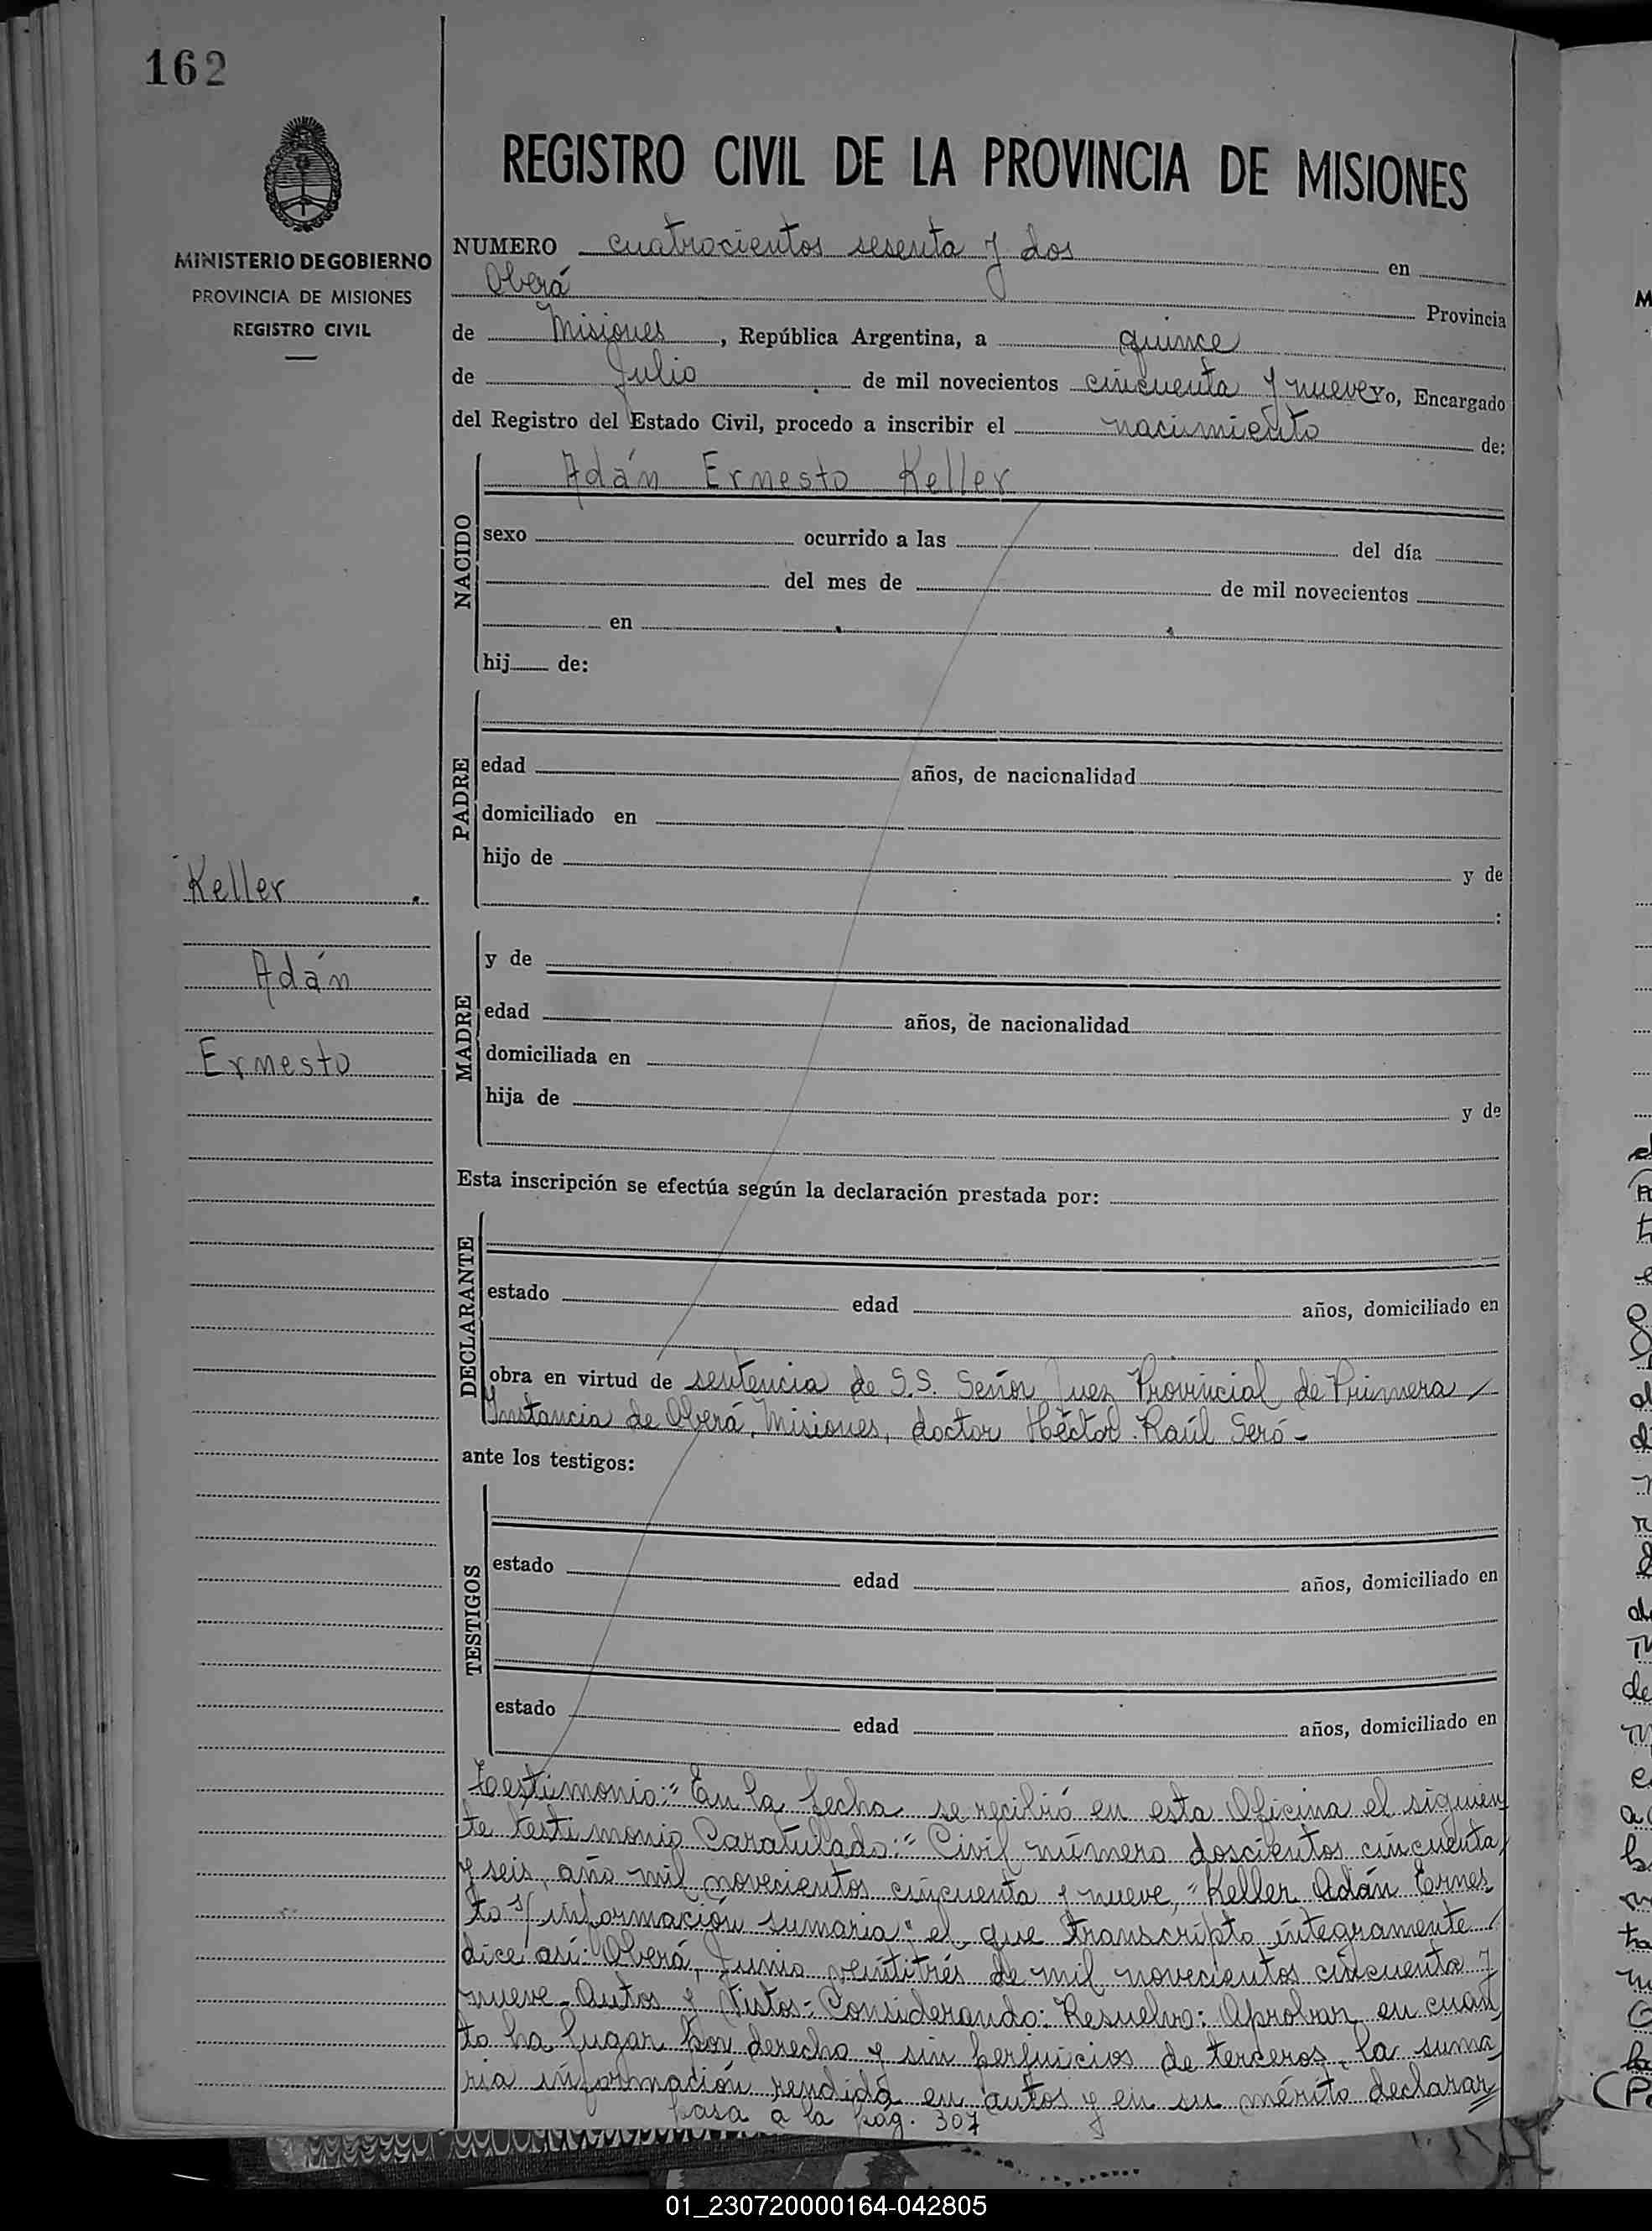 162
MINISTERIO DE GOBIERNO
PROVINCIA DE MISIONES
REGISTRO CIVIL
REGISTRO CIVIL DE LA PROVINCIA DE MISIONES
NUMERO cuatrocientos sesenta y dos en
Oberá Provincia
de Misiones, República Argentina, a quince
de Julio de mil novecientos cincuenta y nueve Yo, Encargado
del Registro del Estado Civil, procedo a inscribir el nacimiento de:
NACIDO
Adán Ernesto Keller
sexo ocurrido a las del día
del mes de de mil novecientos
en
hij de:
PADRE
edad años, de nacionalidad
domiciliado en
hijo de y de
:
Keller
Adán
Ernesto
MADRE
y de
edad años, de nacionalidad
domiciliada en
hija de y de
Esta inscripción se efectúa según la declaración prestada por:
DECLARANTE
estado edad años, domiciliado en
obra en virtud de sentencia de S.S. Señor Juez Provincial de Primera
Instancia de Oberá, Misiones, doctor Héctor Raúl Seró-
ante los testigos:
TESTIGOS
estado edad años, domiciliado en
estado edad años, domiciliado en
Testimonio:" En la fecha se recibió en esta Oficina el siguien
te testimonio Caratulado:" Civil número doscientos cincuenta
y seis, año mil novecientos cincuenta y nueve, "Keller Adán Ernes
to s/ información sumaria" el que transcripto íntegramente /
dice así: Oberá, Junio veintitrés de mil novecientos cincuenta y
nueve- Autos y Vistos- Considerando: Resuelvo: Aprobar en cuan
to ha lugar por derecho y sin perjuicios de terceros, la suma
ria información rendida en autos y en su mérito declarar
pasa a la pág. 307
01_230720000164-042805